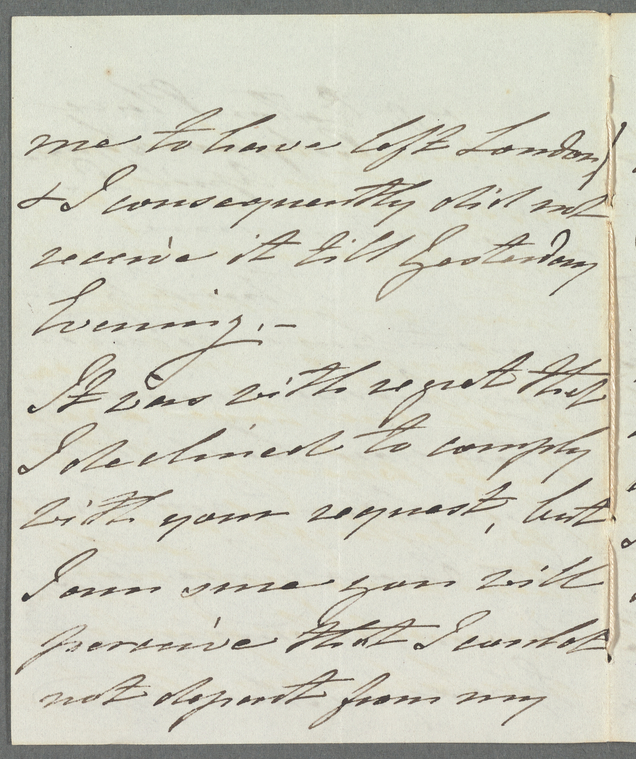 me to have left London)
& I consequently did not
receive it till Yesterday
Evening.—
It was with regret that
I declined to comply
with your request, but
I am sure you will
perceive that I could
not depart from my